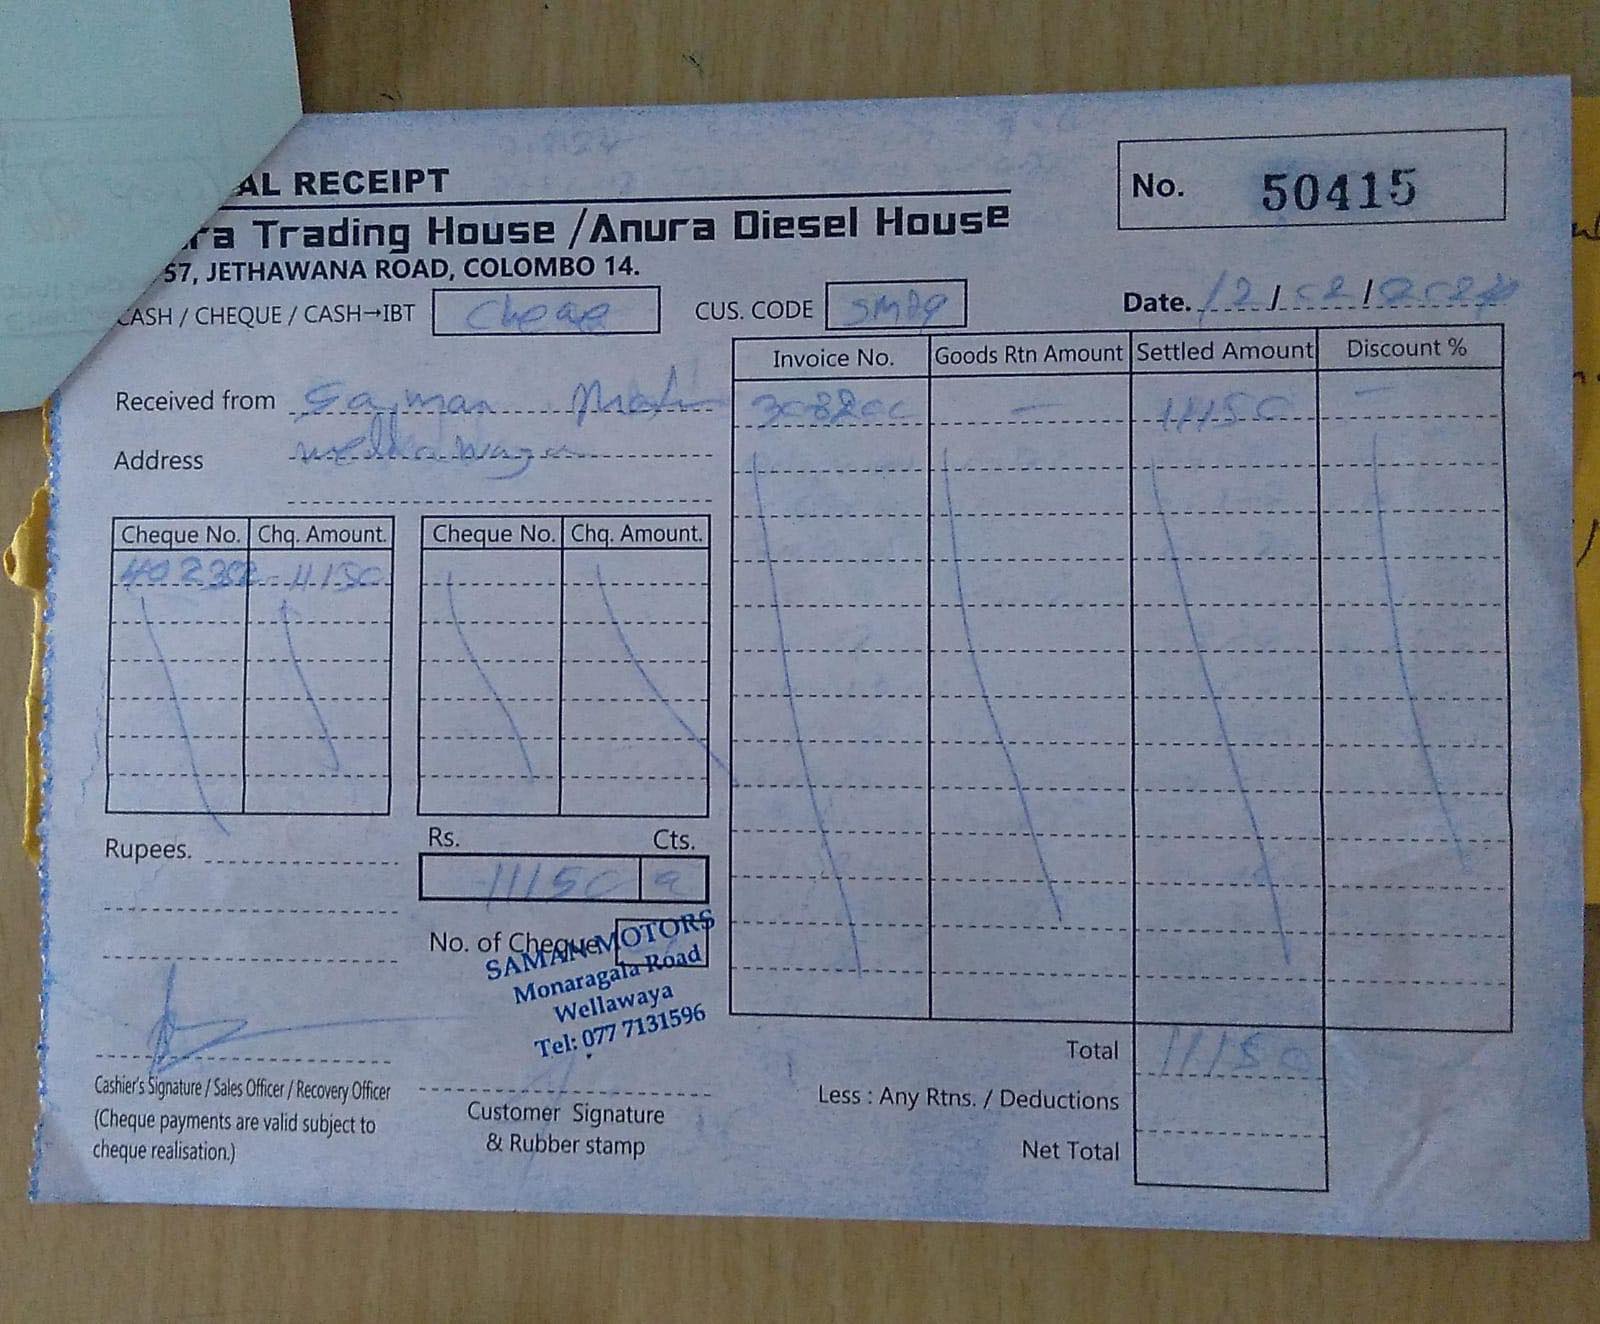 AL RECEIPT
No. 50415
ra Trading House /Anura Diesel House
57, JETHAWANA ROAD, COLOMBO 14.
CASH / CHEQUE / CASH→IBT
CUS. CODE
Date. 12/02/
Invoice No. Goods Rtn Amount Settled Amount Discount %
Received from
— 11150 —
Address
Cheque No. Chq. Amount. Cheque No. Chq. Amount.
11150
Rupees.
Rs. Cts.
11150
No. of Cheque
SAMAN MOTORS
Monaragala Road
Wellawaya
Tel: 077 7131596
Total 11150
Cashier's Signature / Sales Officer / Recovery Officer
Less : Any Rtns. / Deductions
(Cheque payments are valid subject to
cheque realisation.)
Customer Signature
& Rubber stamp
Net Total